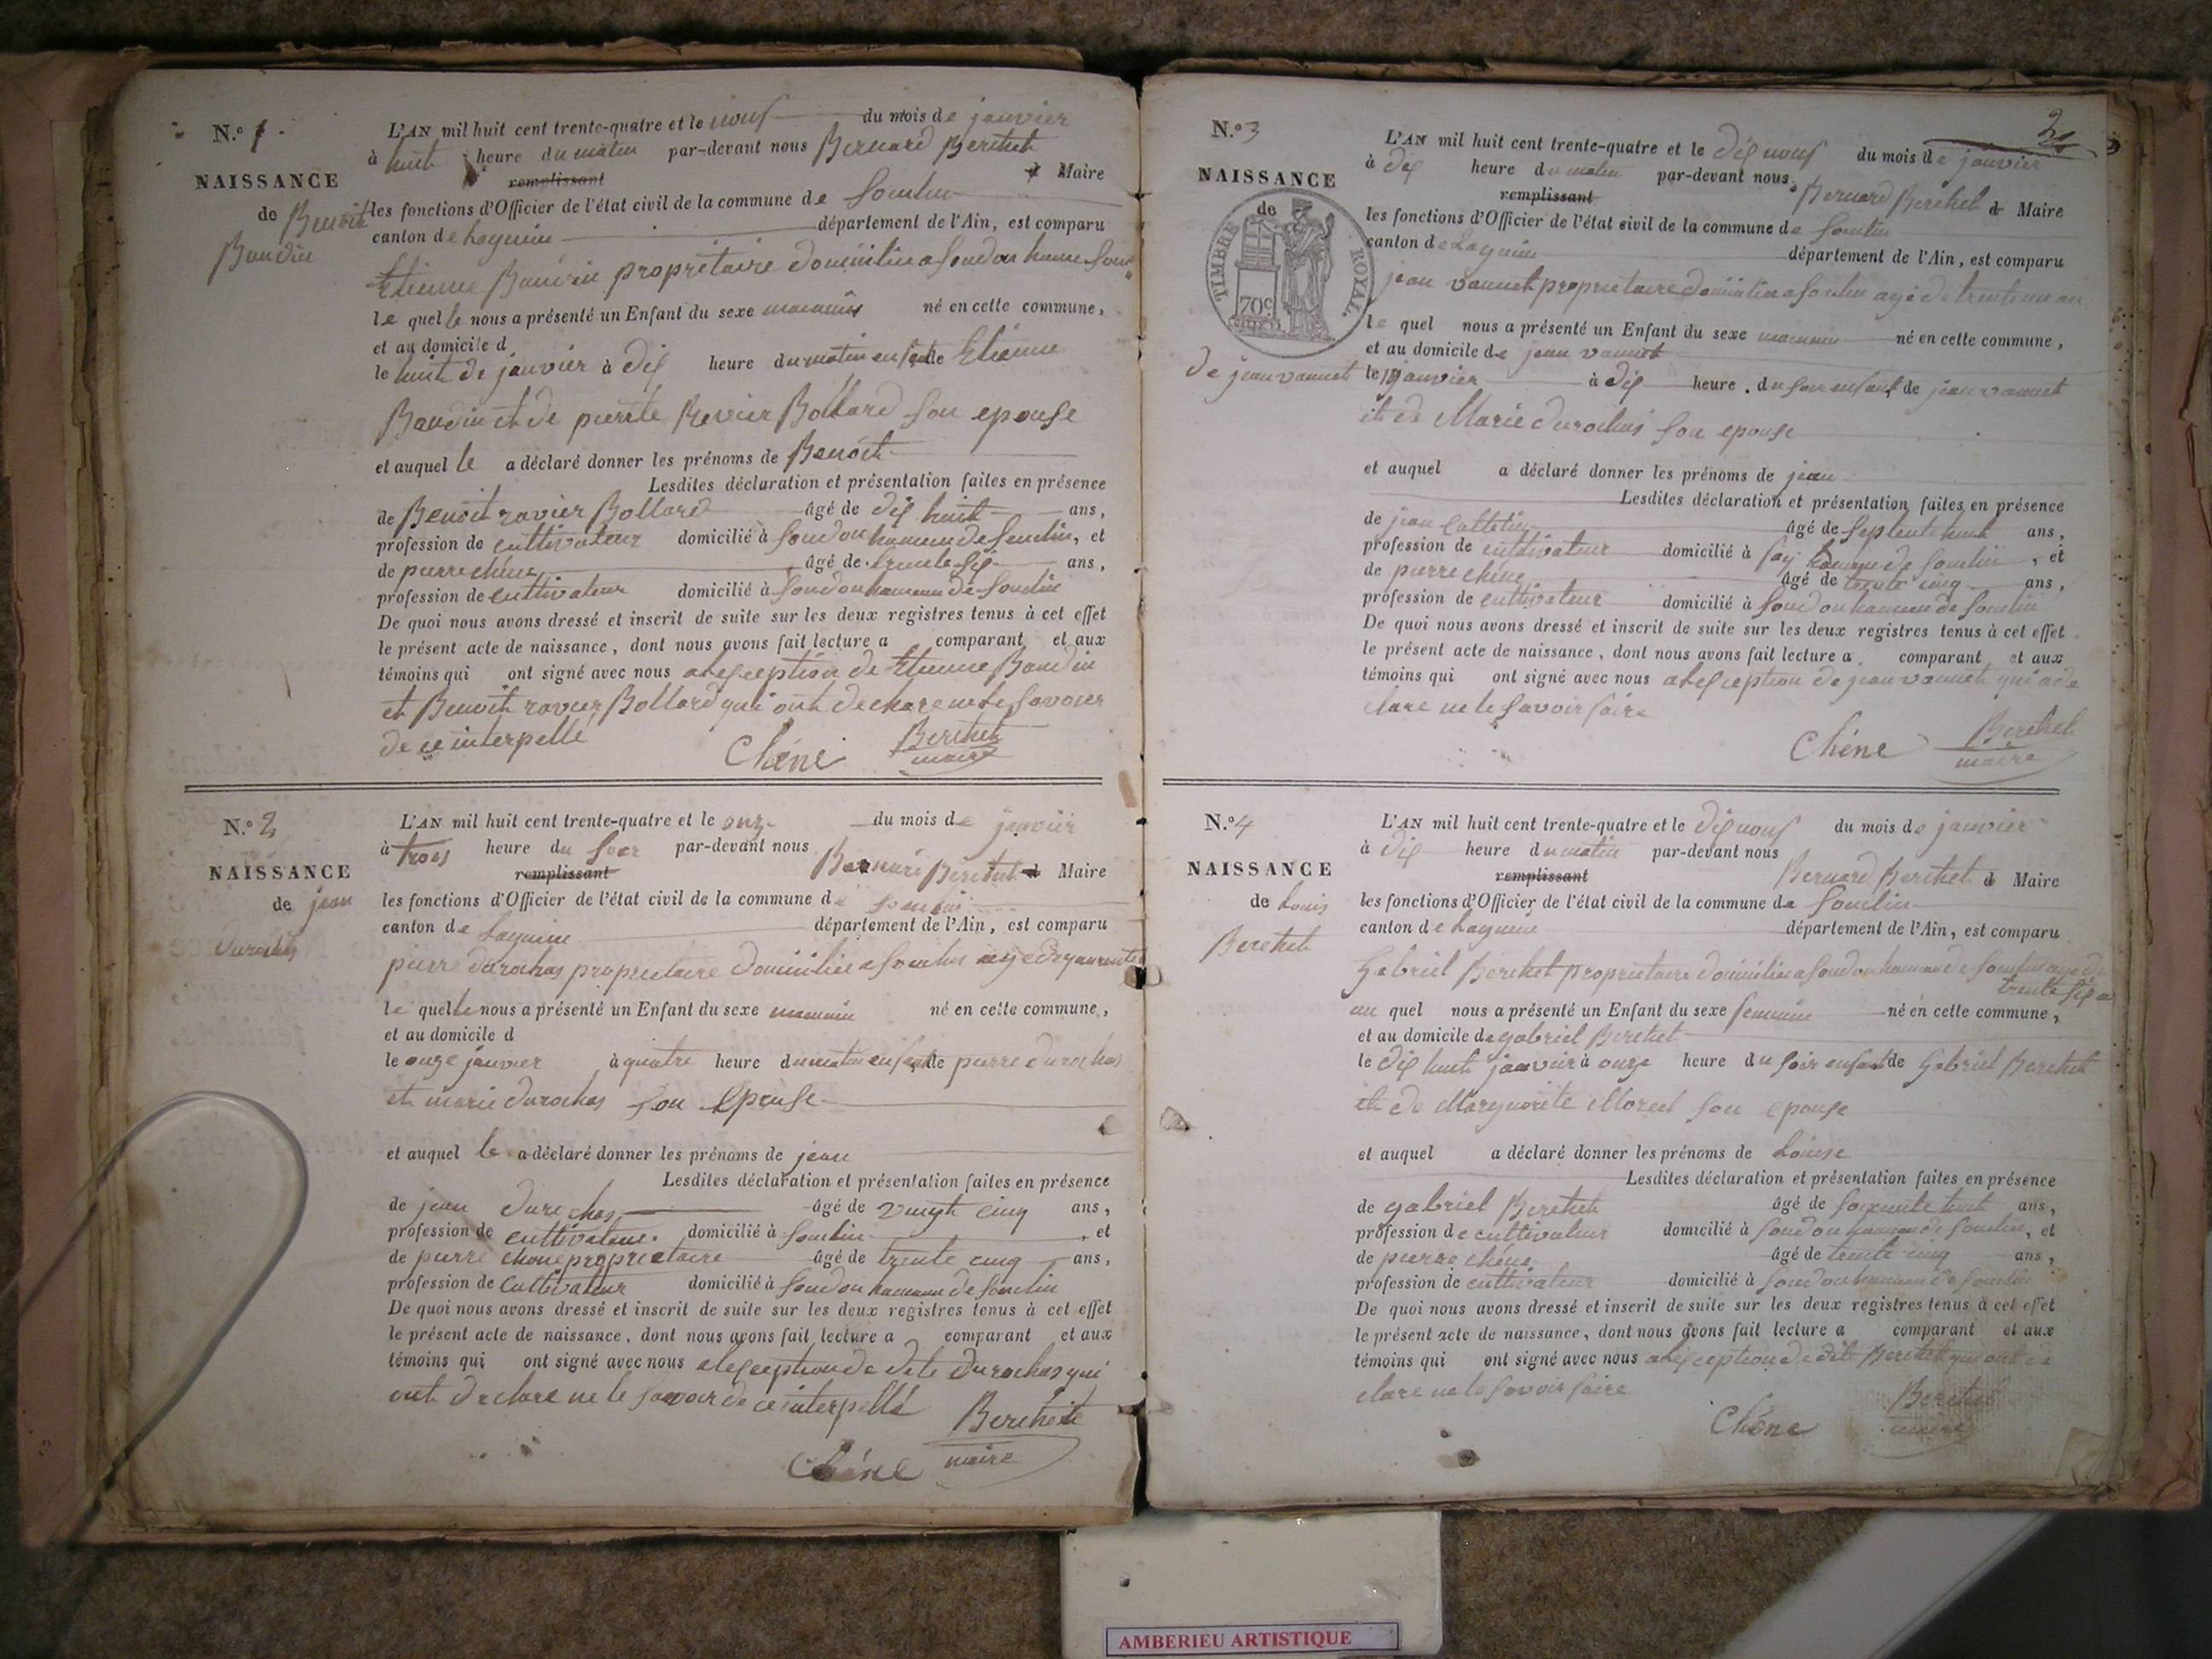 N.o 1
NAISSANCE
de Benoit
Baudin
L'AN mil huit cent trente-quatre et le neuf du mois de janvier
à huit heure du matin par-devant nous Bernard Berthet
remplissant Maire
les fonctions d'Officier de l'état civil de la commune de Souclin
canton de Lagnieu département de l'Ain, est comparu
Etienne Baudin propriétaire domicilié a Soudon hameau
le quel le nous a présenté un Enfant du sexe masculin né en cette commune,
et au domicile d
le huit de janvier à dix heure du matin enfant de Etienne
Baudin et de pierrete Revier Bollard son epouse
et auquel le a déclaré donner les prénoms de Benoit
Lesdites déclaration et présentation faites en présence
de Benoit ravier Bollard âgé de dix huit ans,
profession de cultivateur domicilié à Soudon hameau de Souclin, et
de pierre chéne âgé de trente six ans,
profession de cultivateur domicilié à Soudon hameau de Souclin
De quoi nous avons dressé et inscrit de suite sur les deux registres tenus à cet effet
le présent acte de naissance, dont nous avons fait lecture a comparant et aux
témoins qui ont signé avec nous a lexception de Etienne Baudin
et Benoit ravier Bollard qui ont declare ne le savoir
de ce interpellé
Chéne Berthet
maire
N.o 2
NAISSANCE
de jean
durochas
L'AN mil huit cent trente-quatre et le onze du mois de janvier
à trois heure du soir par-devant nous
remplissant Bernard Berthet d Maire
les fonctions d'Officier de l'état civil de la commune de Souclin
canton de Lagnieu département de l'Ain, est comparu
pierre durochas propriétaire domicilié a Souclin agé de quarante
le quel le nous a présenté un Enfant du sexe masculin né en cette commune,
et au domicile d
le onze janvier à quatre heure du matin enfant de pierre durochas
et marie durochas son epouse
et auquel le a déclaré donner les prénoms de jean
Lesdites déclaration et présentation faites en présence
de jean durochas âgé de vingt cinq ans,
profession de cultivateur domicilié à Souclin, et
de pierre chene propriétaire âgé de trente cinq ans,
profession de cultivateur domicilié à Soudon hameau de Souclin
De quoi nous avons dressé et inscrit de suite sur les deux registres tenus à cet effet
le présent acte de naissance, dont nous avons fait lecture a comparant et aux
témoins qui ont signé avec nous a lexception de dite durochas qui
ont declare ne le savoir de ce interpellé
Berthet
Chéne maire
2
N.o 3
NAISSANCE
de
TIMBRE ROYAL
70c
de jean vannet
L'AN mil huit cent trente-quatre et le dix neuf du mois de janvier
à dix heure du matin par-devant nous
remplissant Bernard Berthet d Maire
les fonctions d'Officier de l'état civil de la commune de Souclin
canton de Lagnieu département de l'Ain, est comparu
jean vannet propriétaire domicilié a Souclin agé de trente un an
le quel nous a présenté un Enfant du sexe masculin né en cette commune,
et au domicile de jean vannet
le janvier à dix heure du soir enfant de jean vannet
et de Marie durochas son epouse
et auquel a déclaré donner les prénoms de jean
Lesdites déclaration et présentation faites en présence
de jean âgé de septente huit ans,
profession de cultivateur domicilié à hameau de Souclin, et
de pierre chéne âgé de trente cinq ans,
profession de cultivateur domicilié à Soudon hameau de Souclin
De quoi nous avons dressé et inscrit de suite sur les deux registres tenus à cet effet
le présent acte de naissance, dont nous avons fait lecture a comparant et aux
témoins qui ont signé avec nous a lexception de jean vannet qui a de
clare ne le savoir faire
Chéne Berthet
maire
N.o 4
NAISSANCE
de Louis
Berthet
L'AN mil huit cent trente-quatre et le dix neuf du mois de janvier
à dix heure du matin par-devant nous
remplissant Bernard Berthet d Maire
les fonctions d'Officier de l'état civil de la commune de Souclin
canton de Lagnieu département de l'Ain, est comparu
Gabriel Berthet propriétaire domicilié a Soudon hameau de Souclin agé de
trente six a
quel nous a présenté un Enfant du sexe feminin né en cette commune,
et au domicile de gabriel Berthet
le dix huit janvier à onze heure du soir enfant de Gabriel Berthet
et de Marguerite Morel son epouse
et auquel a déclaré donner les prénoms de Louise
Lesdites déclaration et présentation faites en présence
de gabriel Berthet âgé de soixante huit ans,
profession de cultivateur domicilié à Soudon hameau de Souclin, et
de pierre chéne âgé de trente cinq ans,
profession de cultivateur domicilié à Soudon hameau de Souclin
De quoi nous avons dressé et inscrit de suite sur les deux registres tenus à cet effet
le présent acte de naissance, dont nous avons fait lecture a comparant et aux
témoins qui ont signé avec nous a lexception de dite Berthet qui ont de
clare ne le savoir faire
Chéne Berthet
maire
AMBERIEU ARTISTIQUE